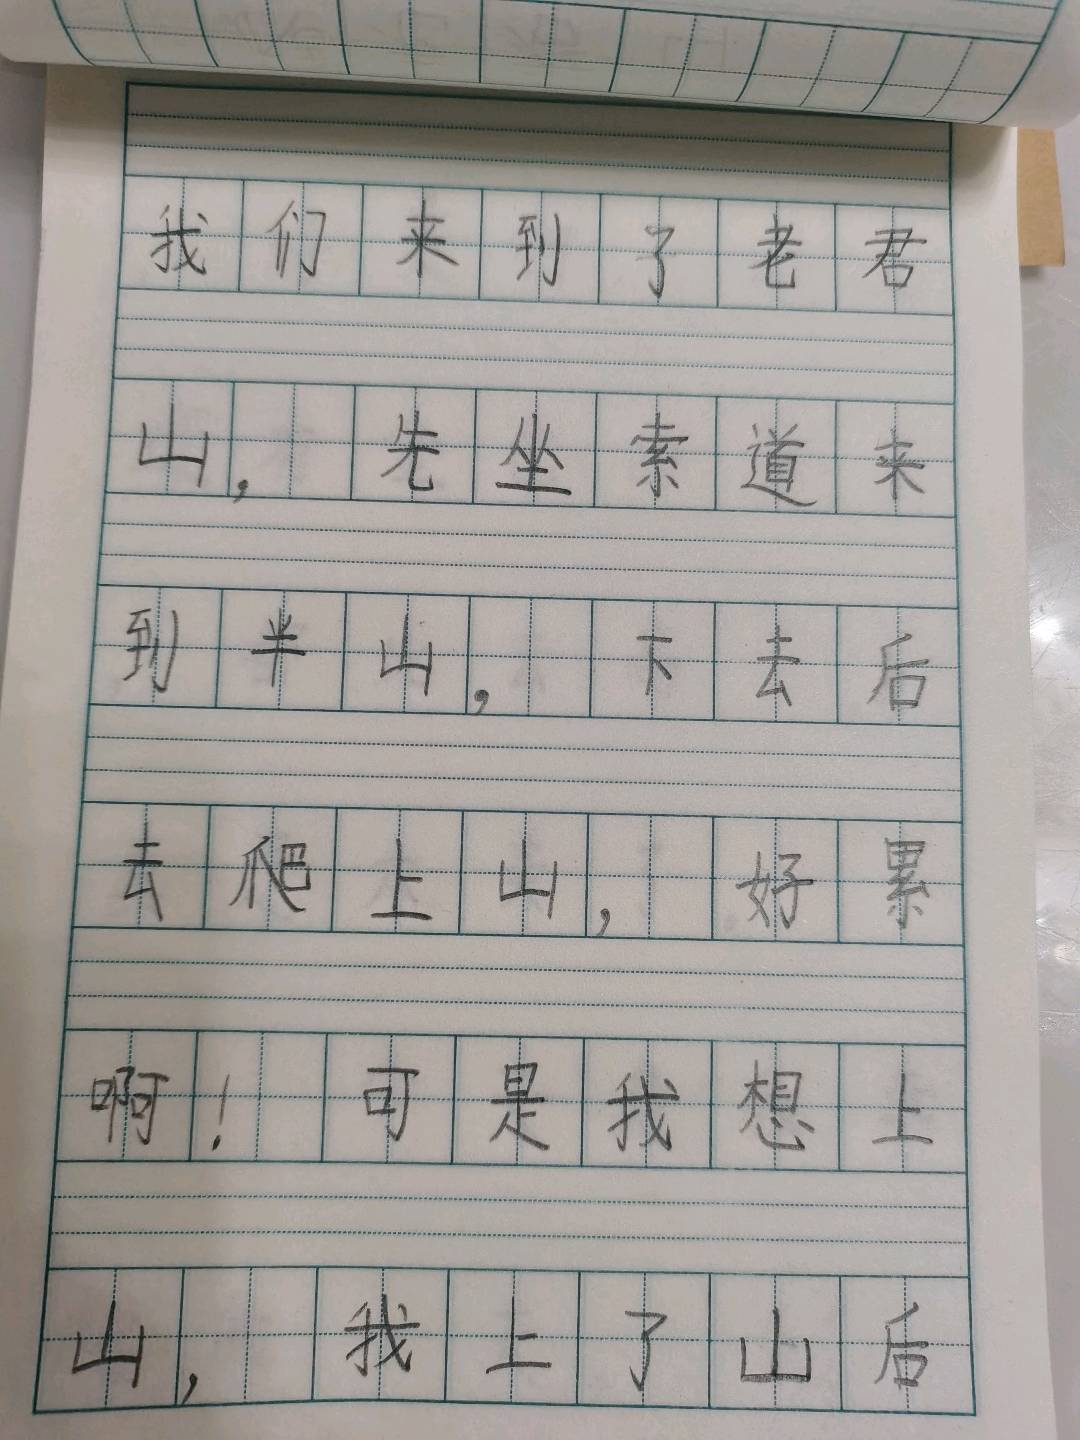 我们来到了老君
山，先坐索道来
到半山，下去后
去爬上山，好累
啊！可是我想上
山，我上了山后